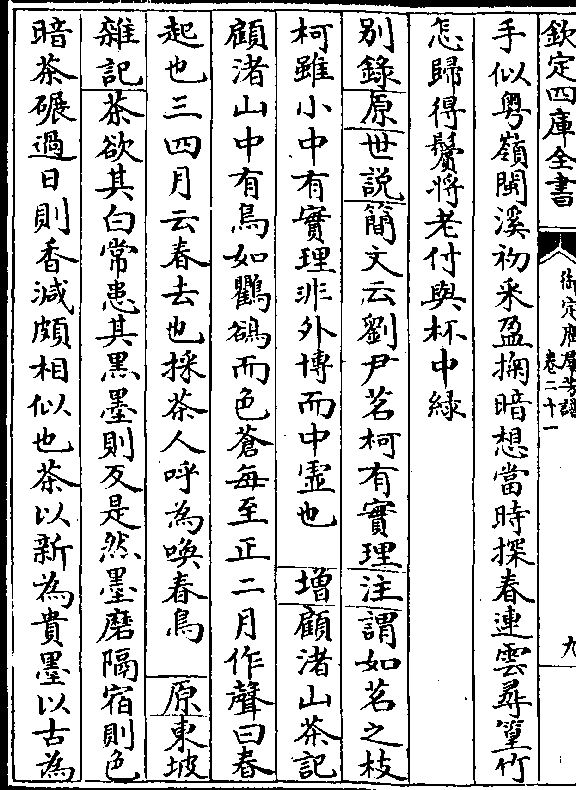 欽定四庫全書
御定廣羣芳譜
卷二十一
九
手似粤嶺閩溪初采盈掬暗想當時探春連雲尋篁竹
怎歸得鬢將老付與杯中緑
别錄原世説簡文云劉尹茗柯有實理注謂如茗之枝
柯雖小中有實理非外博而中虛也　增顧渚山茶記
顧渚山中有鳥如鸜鵒而色蒼每至正二月作聲曰春
起也三四月云春去也採茶人呼為喚春鳥　原東坡
雜記茶欲其白常患其黑墨則反是然墨磨隔宿則色
暗茶碾過日則香減頗相似也茶以新為貴墨以古為